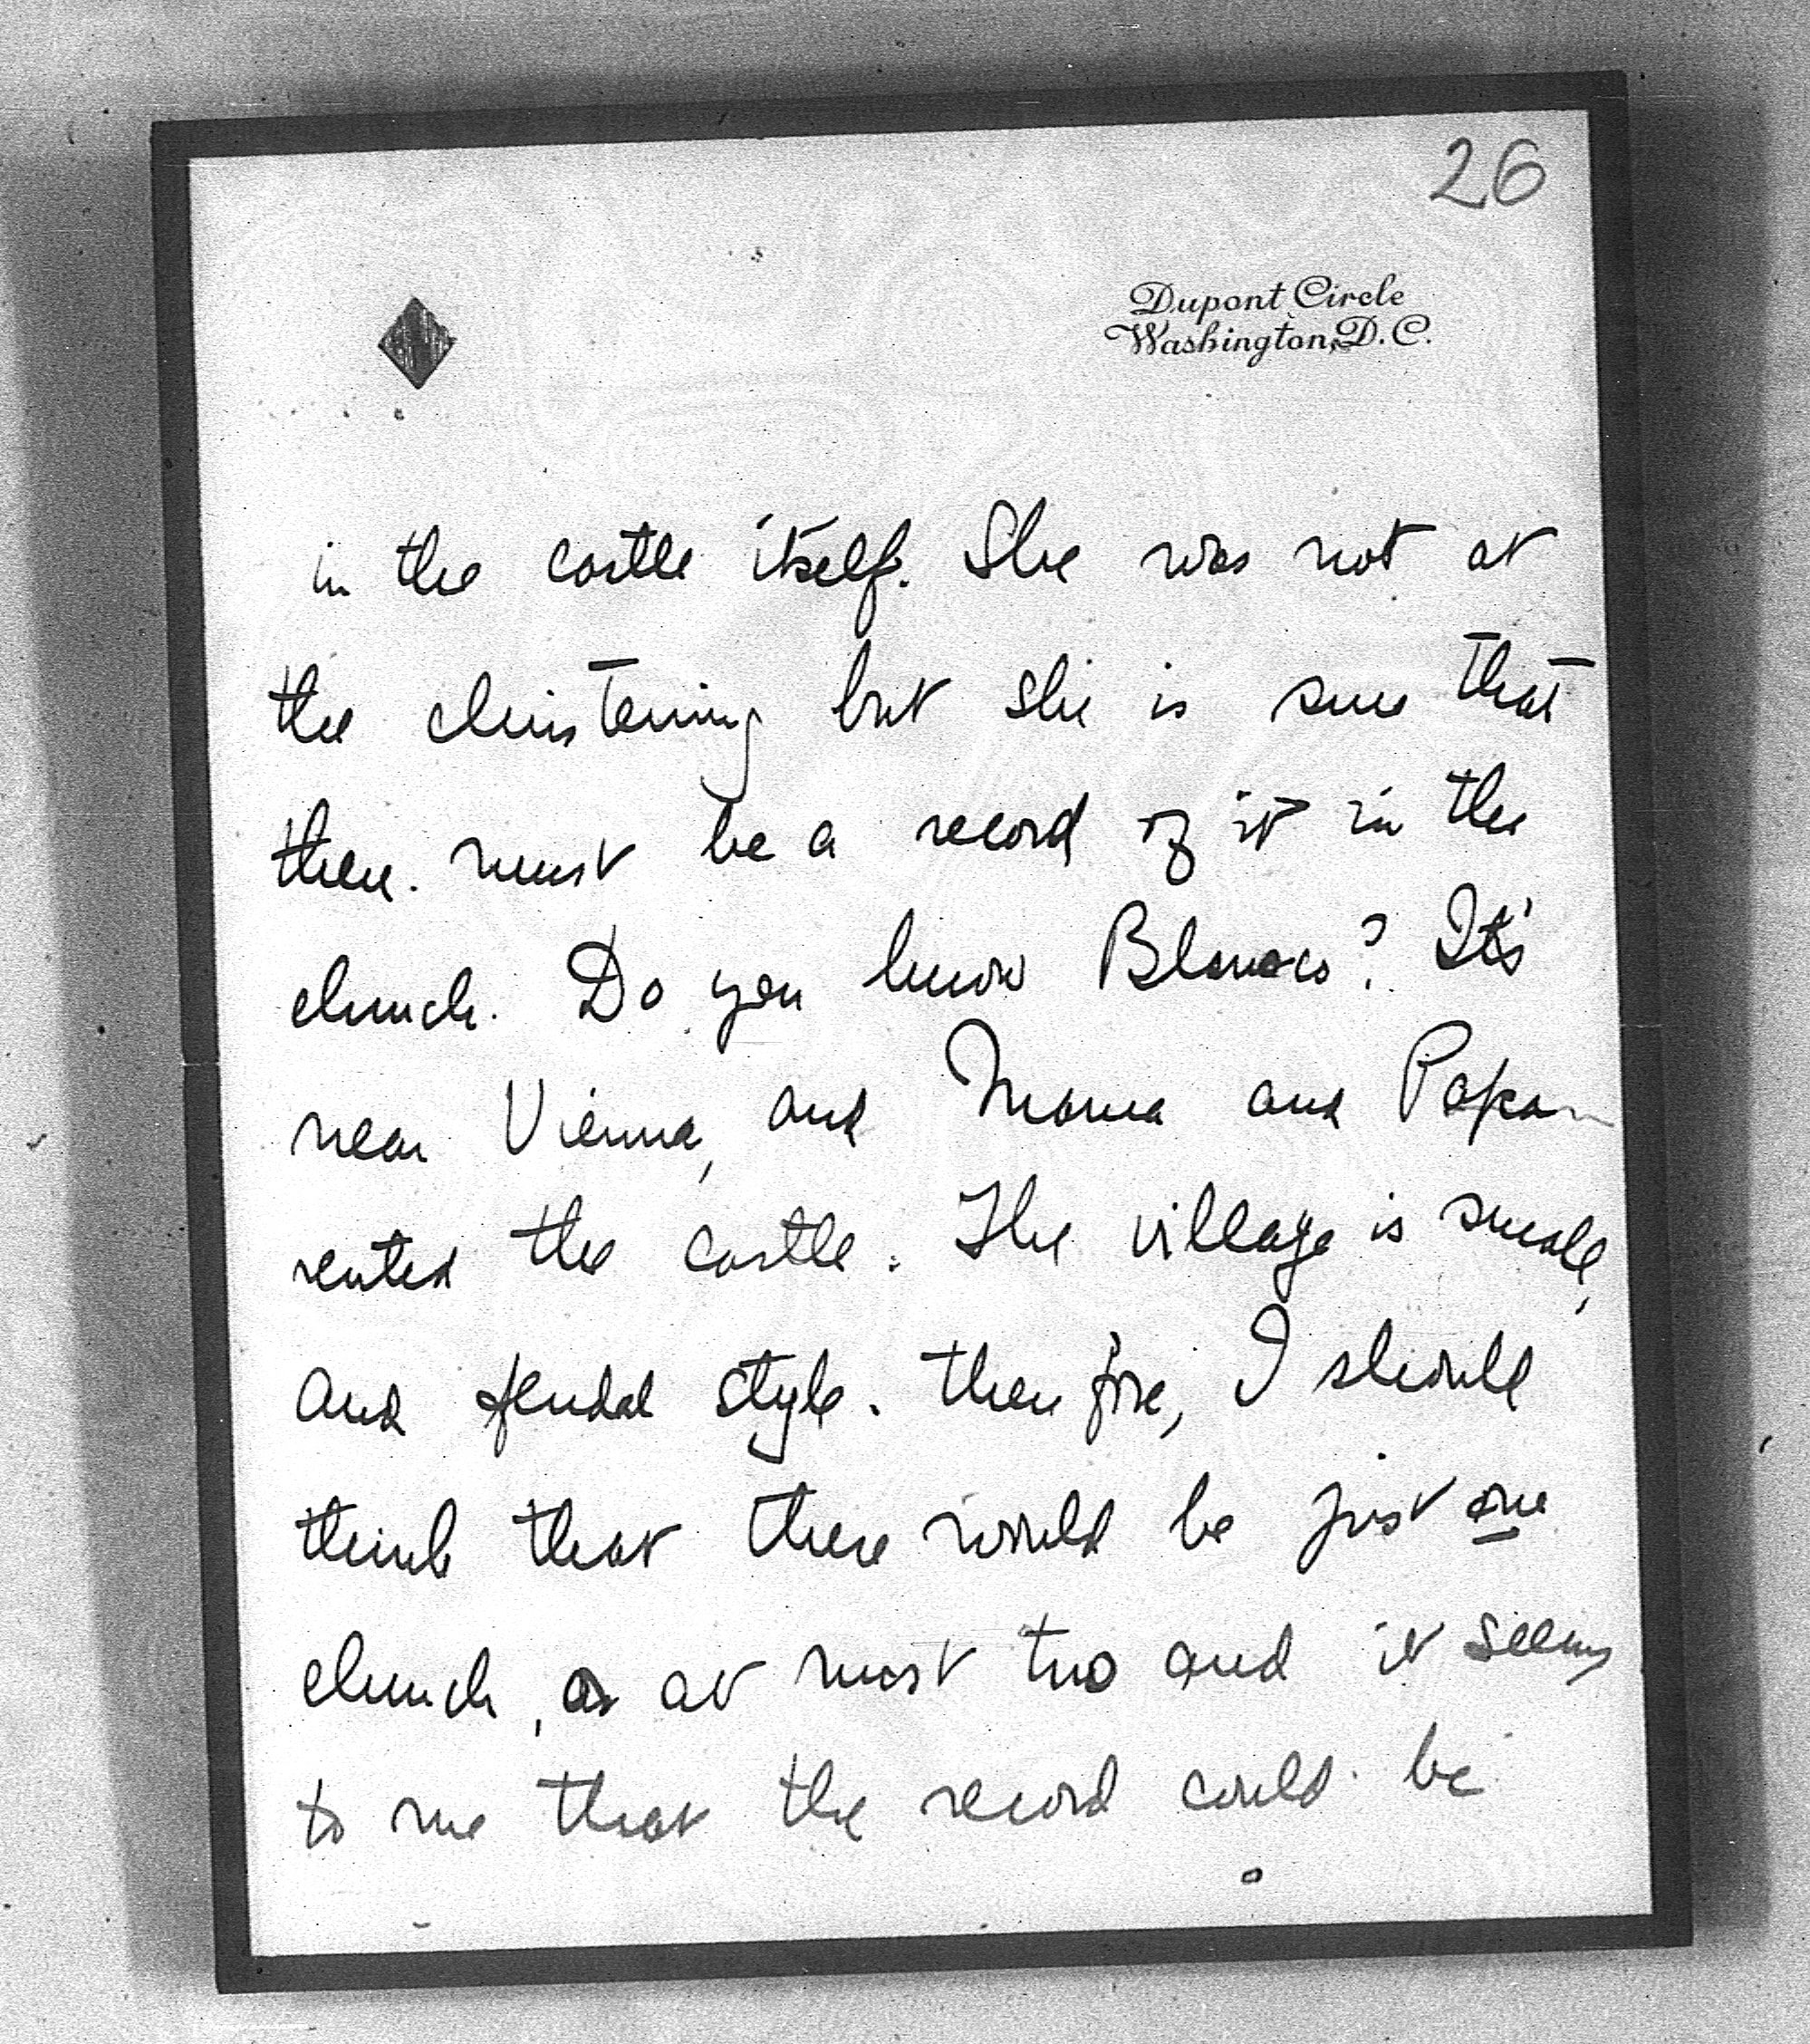 26
Dupont Circle
Washington, D.C.
in the castle itself. She was not at
the christening but she is sure that
there must be a record of it in the
church. Do you know Blansco? It's
near Vienna, and Mama and Papa
rented the castle. The village is small,
and feudal style. Therefore, I should
think that there would be just one
church, or at most two and it seems
to me that the record could be